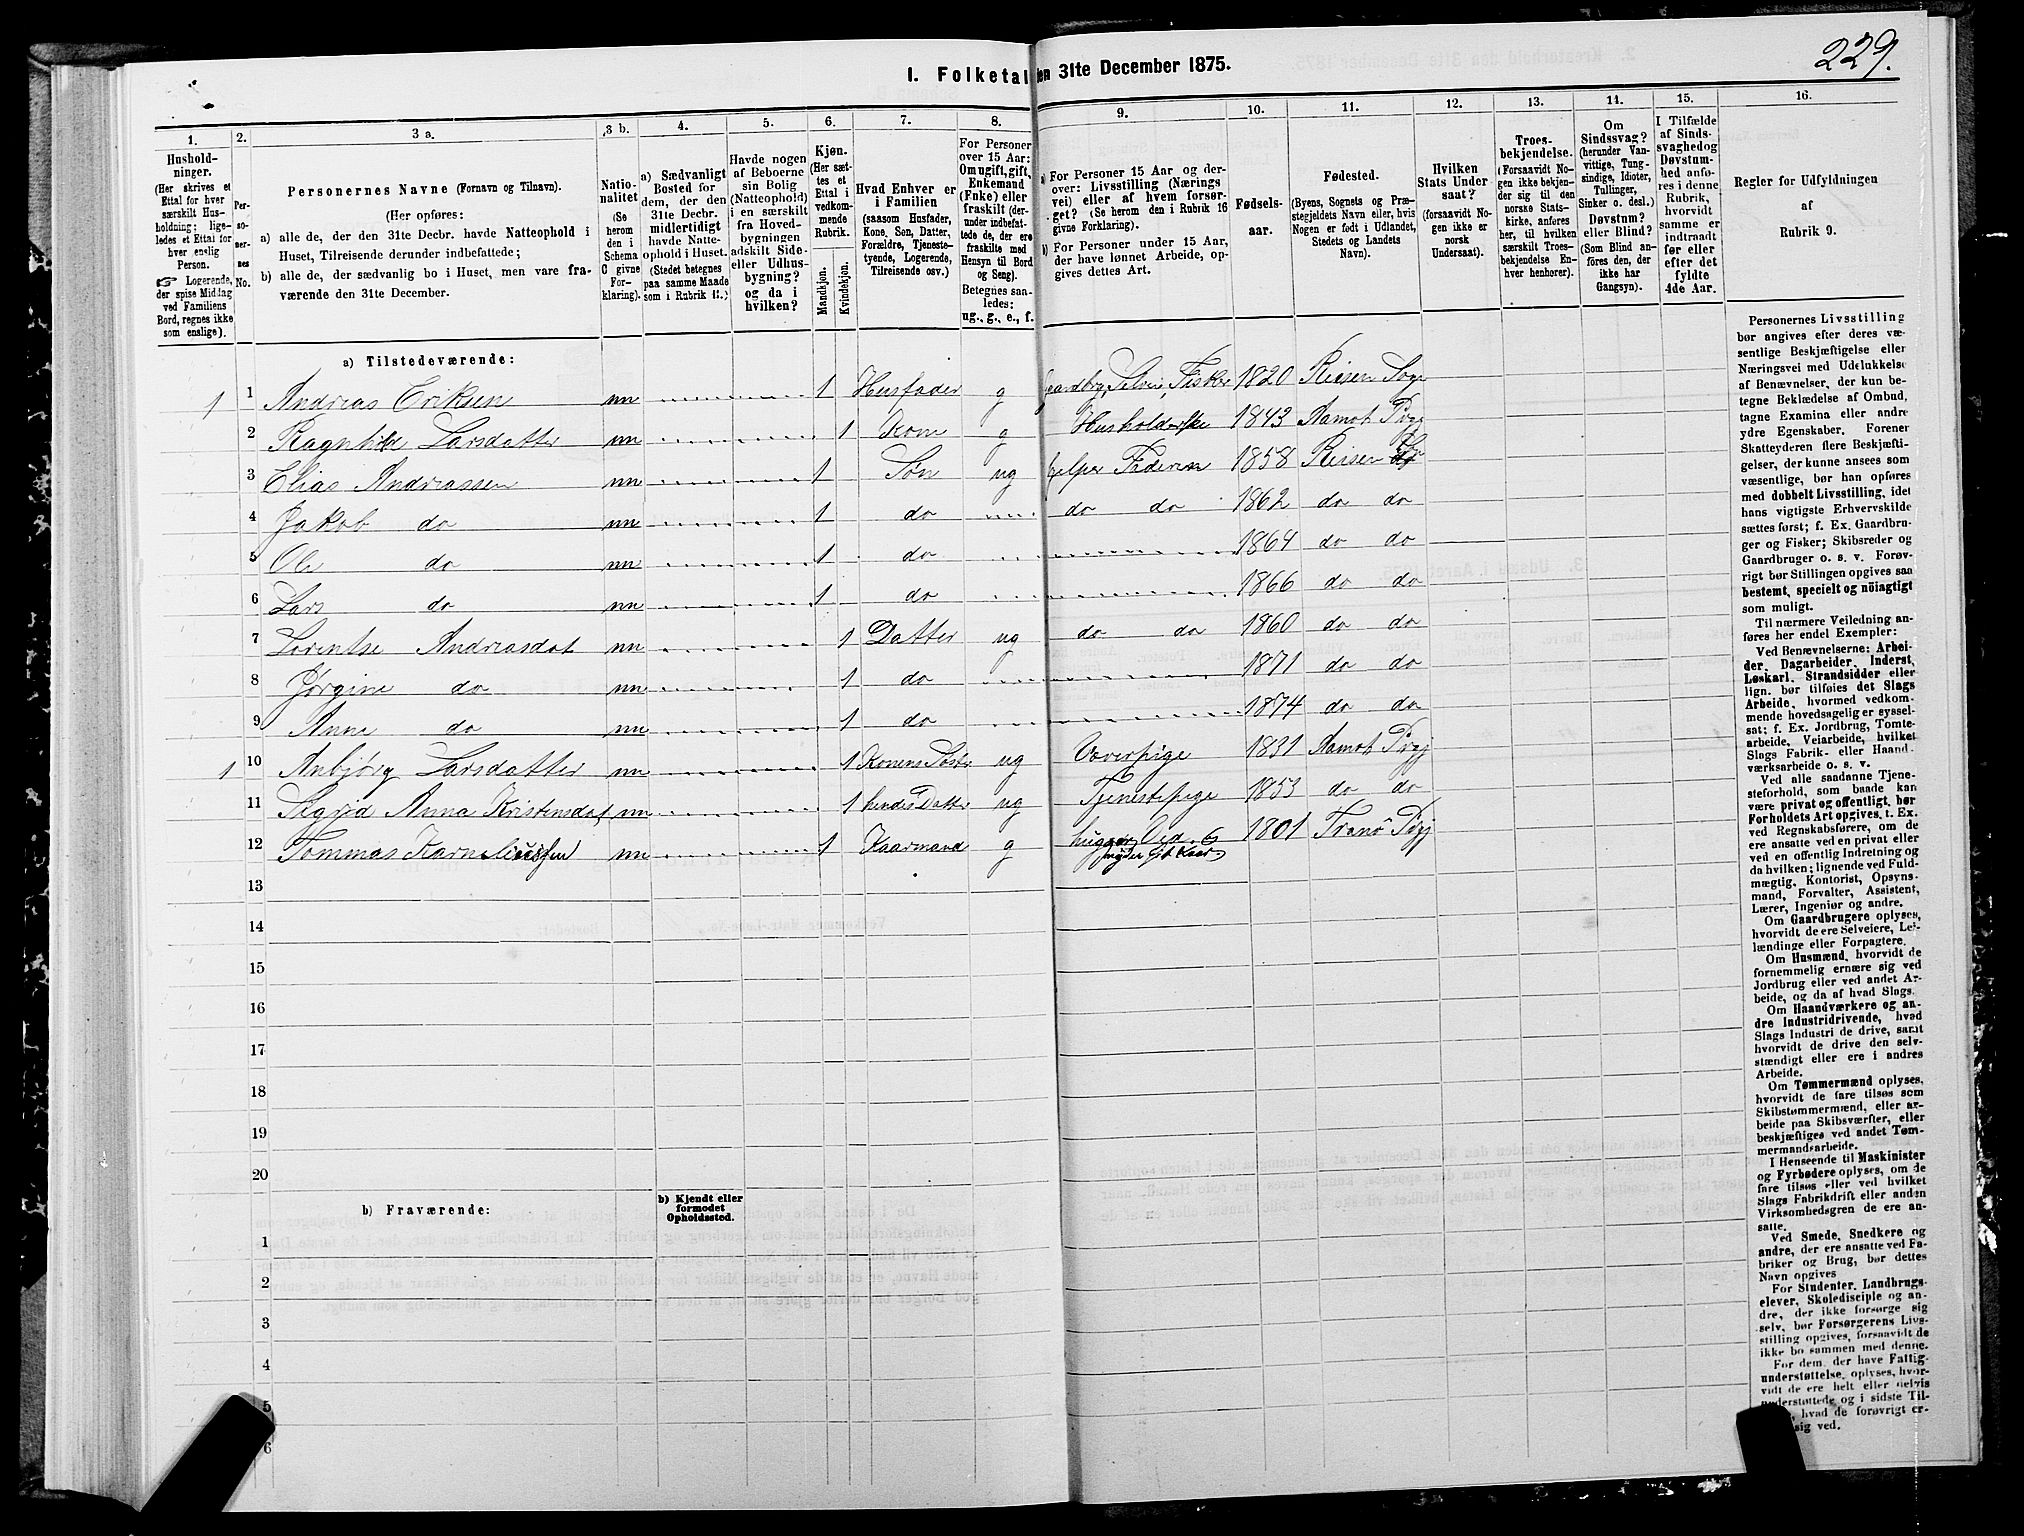 229.
I. Folketal den 31te December 1875.
1. 2. 3 a. 3 b. 4. 5. 6. 7. 8. 9. 10. 11. 12. 13. 14. 15. 16.
Hushold-
ninger.
(Her skrives et
Ettal for hver
særskilt Hus-
holdning; lige-
ledes et Ettal for
hver enslig
Person.
☞ Logerende,
der spise Middag
ved Familiens
Bord, regnes ikke
som enslige).
Per-
so-
ner-
nes
No.
Personernes Navne (Fornavn og Tilnavn).
(Her opføres:
a) alle de, der den 31te Decbr. havde Natteophold i
Huset, Tilreisende derunder indbefattede;
b) alle de, der sædvanlig bo i Huset, men vare fra-
værende den 31te December.
Natio-
nalitet
(Se
herom
den i
Schema
C givne
For-
klaring).
a) Sædvanligt
Bosted for
dem, der den
31te Decbr.
midlertidigt
havde Natte-
ophold i Huset.
(Stedet betegnes
paa samme Maade
som i Rubrik 11.)
Havde nogen
af Beboerne
sin Bolig
(Natteophold)
i en særskilt
fra Hoved-
bygningen
adskilt Side-
eller Udhus-
bygning?
og da i
hvilken?
Kjøn.
(Her sæt-
tes et
Ettal i
vedkom-
mende
Rubrik.
Mandkjøn.
Kvindekjøn.
Hvad Enhver er
i Familien
(saasom Husfader,
Kone, Søn, Datter,
Forældre, Tjeneste-
tyende, Logerende,
Tilreisende osv.)
For Personer
over 15 Aar:
Om ugift, gift,
Enkemand
(Enke) eller
fraskilt (der-
under indbefat-
tede de, der ere
fraskilte med
Hensyn til Bord
og Seng).
Betegnes saa-
ledes:
ug., g., e., f.
a) For Personer 15 Aar og der-
over: Livsstilling (Nærings
vei) eller af hvem forsør-
get? (Se herom den i Rubrik 16
givne Forklaring).
b) For Personer under 15 Aar,
der have lønnet Arbeide, op-
gives dettes Art.
Fødsels-
aar.
Fødested.
(Byens, Sognets og Præ-
stegjeldets Navn eller, hvis
Nogen er født i Udlandet,
Stedets og Landets
Navn).
Hvilken
Stats Under
saat?
(forsaavidt No-
gen ikke er
norsk
Undersaat).
Troes-
bekjendelse.
(Forsaavidt No-
gen ikke bekjen-
der sig til den
norske Stats-
kirke, anføres
her, til hvilken
særskilt Troes-
bekjendelse En-
hver henhorer).
Om
Sindssvag?
(herunder Van-
vittige, Tung-
sindige, Idioter,
Tullinger,
Sinker o. desl.)
Døvstum?
eller Blind?
(Som Blind an-
føres den, der
ikke har
Gangsyn).
I Tilfælde
af Sinds-
svaghed og
Døvstum-
hed anfø-
res i denne
Rubrik,
hvorvidt
samme er
indtraadt
før eller
efter det
fyldte
4de Aar.
Regler for Udfyldningen
af
Rubrik 9.
a) Tilstedeværende:
1 1 Andreas Eriksen nn 1 Husfader g Gaardbrg, Selvei, Fisker 1820 Reisen Sogn
2 Ragnhild Larsdatter nn 1 Kone g Husholderske 1843 Aamot Prgj
3 Elias Andreassen nn 1 Søn ug hjelper Faderen 1858 Reisen
4 Jakob do nn 1 do do do 1862 do do
5 Ole do nn 1 do 1864 do do
6 Lars do nn 1 do 1866 do do
7 Lorentse Andreasdat nn 1 Datter ug do do 1860 do do
8 Jørgine do nn 1 do 1871 do do
9 Anne do nn 1 do 1874 do do
1 10 Anbjørg Larsdatter nn 1 Konens Søster ug Væverpige 1831 Aamot Prgj
11 Sigrid Anna Kristensdat nn 1 hendes Datter ug Tjenestepige 1853 do do
12 Tommas Karneliussen nn 1 Kaarmand g hugger Ved
nyder lidt Kaar 1801 Tranø Prgj
13
14
15
16
17
18
19
20
b) Fraværende:
b) Kjendt eller
formodet
Opholdssted.
1
2
3
4
5
6
Personernes Livsstilling
bør angives efter deres væ-
sentlige Beskjæftigelse eller
Næringsvei med Udelukkelse
af Benævnelser, der kun be-
tegne Beklædelse af Ombud,
tagne Examina eller andre
ydre Egenskaber. Forener
Skatteyderen flere Beskjæfti-
gelser, der kunne ansees som
væsentlige, bør han opføres
med dobbelt Livsstilling, idet
hans vigtigste Erhvervskilde
sættes først; f. Ex. Gaardbru-
ger og Fisker; Skibsreder og
Gaardbruger o. s. v. Forøv-
rigt bør Stillingen opgives saa
bestemt, specielt og nöiagtigt
som muligt.
Til nærmere Veiledning an-
føres her endel Exempler:
Ved Benævnelserne: Arbei-
der, Dagarbeider, Inderst,
Løskarl, Strandsidder eller
lign. bør tilføies det Slags
Arbeide, hvormed vedkom-
mende hovedsagelig er syssel-
sat; f. Ex. Jordbrug, Tomte-
arbeide, Veiarbeide, hvilket
Slags Fabrik- eller Haand-
værksarbeide o. s. v.
Ved alle saadanne Tjene-
steforhold, som baade kan
være privat og offentligt, bør
Forholdets Art opgives, t. Ex.
ved Regnskabsførere, om de
ere ansatte ved en privat eller
ved en offentlig Indretning og
da hvilken; lignende ved Fuld-
mægtig, Kontorist, Opsyns-
mand, Forvalter, Assistent,
Lærer, Ingeniør og andre.
Om Gaardbrugere oplyses,
hvorvidt de ere Selveiere, Lei-
lændinge eller Forpagtere.
Om Husmænd, hvorvidt de
fornemmelig ernære sig ved
Jordbrug eller ved andet Ar-
beide, og da af hvad Slags.
Om Haandværkere og an-
dre Industridrivende, hvad
Slags Industri de drive, samt
hvorvidt de drive den selv-
stændigt eller ere i andres
Arbeide.
Om Tømmermænd oplyses,
hvorvidt de fare tilsøs som
Skibstømmermænd, eller ar-
beide paa Skibsværfter, eller
beskjæftiges ved andet Tøm-
mermandsarbeide.
I Henseende til Maskinister
og Fyrbødere oplyses, om de
fare tilsøs eller ved hvilket
Slags Fabrikdrift eller anden
Virksomhedsgren de ere an-
satte.
Ved Smede, Snedkere og
andre, der ere ansatte ved Fa-
briker og Brug, bør dettes
Navn opgives
For Studenter, Landbrugs-
elever, Skoledisciple og an-
dre, der ikke forsørge sig
selv, bør Forsørgerens Livs-
stilling opgives, forsaavidt de
ikke bo sammen med denne.
For dem, der have Fattig-
understøttelse, oplyses, hvor-
vidt de ere helt eller delvis
understøttede og i sidste Til-
hvad de forøvrigt er-
sig ved.